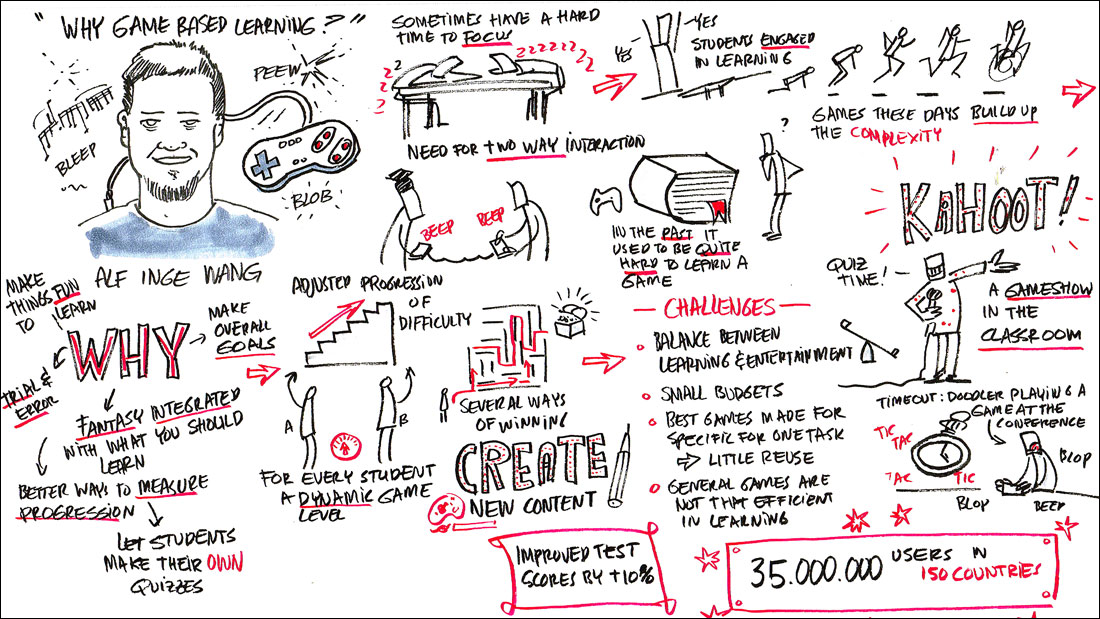 "WHY GAME BASED LEARNING?"
PEEW
BLEEP
BLOB
ALF INGE WANG
SOMETIMES HAVE A HARD
TIME TO FOCUS
zzzzzzz
z
z
z
NEED FOR TWO WAY INTERACTION
BEEP BEEP
YES
YES
STUDENTS ENGAGED
IN LEARNING
?
IN THE PAST IT
USED TO BE QUITE
HARD TO LEARN A
GAME
GAMES THESE DAYS BUILD UP
THE COMPLEXITY
KAHOOT!
QUIZ
TIME!
A GAMESHOW
IN THE
CLASSROOM
TIMEOUT: DOODLER PLAYING A
GAME AT THE
CONFERENCE
TIC
TAC
TAC
TIC
BLOP
BLOP
BEEP
MAKE
THINGS FUN
TO LEARN
WHY
MAKE
OVERALL
GOALS
TRIAL &
ERROR
FANTASY INTEGRATED
WITH WHAT YOU SHOULD
LEARN
BETTER WAYS TO MEASURE
PROGRESSION
LET STUDENTS
MAKE THEIR OWN
QUIZZES
ADJUSTED PROGRESSION
OF
DIFFICULTY
A
B
FOR EVERY STUDENT
A DYNAMIC GAME
LEVEL
SEVERAL WAYS
OF WINNING
CREATE
NEW CONTENT
CHALLENGES
BALANCE BETWEEN
LEARNING & ENTERTAINMENT
SMALL BUDGETS
BEST GAMES MADE FOR
SPECIFIC FOR ONE TASK
⇒ LITTLE REUSE
GENERAL GAMES ARE
NOT THAT EFFICIENT
IN LEARNING
IMPROVED TEST
SCORES BY +10%
35.000.000 USERS IN
150 COUNTRIES